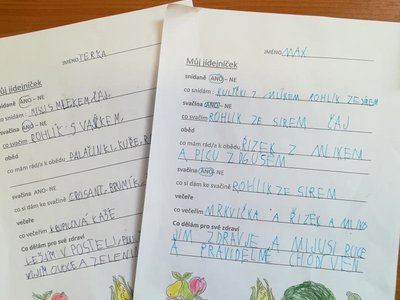 JMÉNO TERKA
Můj jídelníček
snídaně ANO – NE
co snídám: MLÉKEM, ČAJ
svačina ANO – NE
co svačím ROHLÍK S
oběd
co mám rád/a k obědu PALAČINKI, KUŘE,
svačina ANO- NE
co si dám ke svačině
večeře
co večeřím KRUPICOVÁ KAŠE
Co dělám pro své zdraví
LEŽÍM V POSTELI,
OVOCE A ZELENI
JMÉNO MAX
Můj jídelníček
snídaně ANO – NE
co snídám: KULIČKI Z MLÍKEM ROHLÍK ZE SÍREM
svačina ANO- NE
co svačím ROHLÍK ZE SIREM ČAJ
oběd
co mám rád/a k obědu ŘIZEK Z MLIKEM
A PICU Z
svačina ANO- NE
co si dám ke svačině ROHLIK ZE SIREM
večeře
co večeřím MRKVIČKA A ŘIZEK A MLIKO
Co dělám pro své zdraví
JIM ZDRAVJE A MIJU SI RUCE
A PRAVIDELNĚ CHODÍ VEN